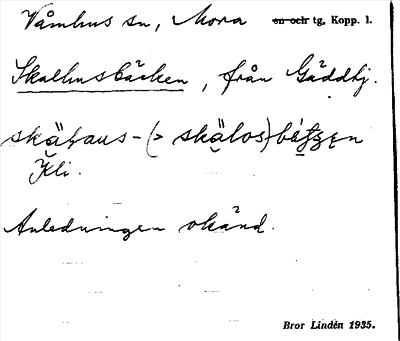 Våmhus sn, Mora ~~sn och~~ tg, Kopp. l.
Skallusbäcken, från Gäddtj.
skäḷaus- (> skäḷos)-bäʦ̣en
Kli.
Anledningen okänd.
Bror Lindén 1935.